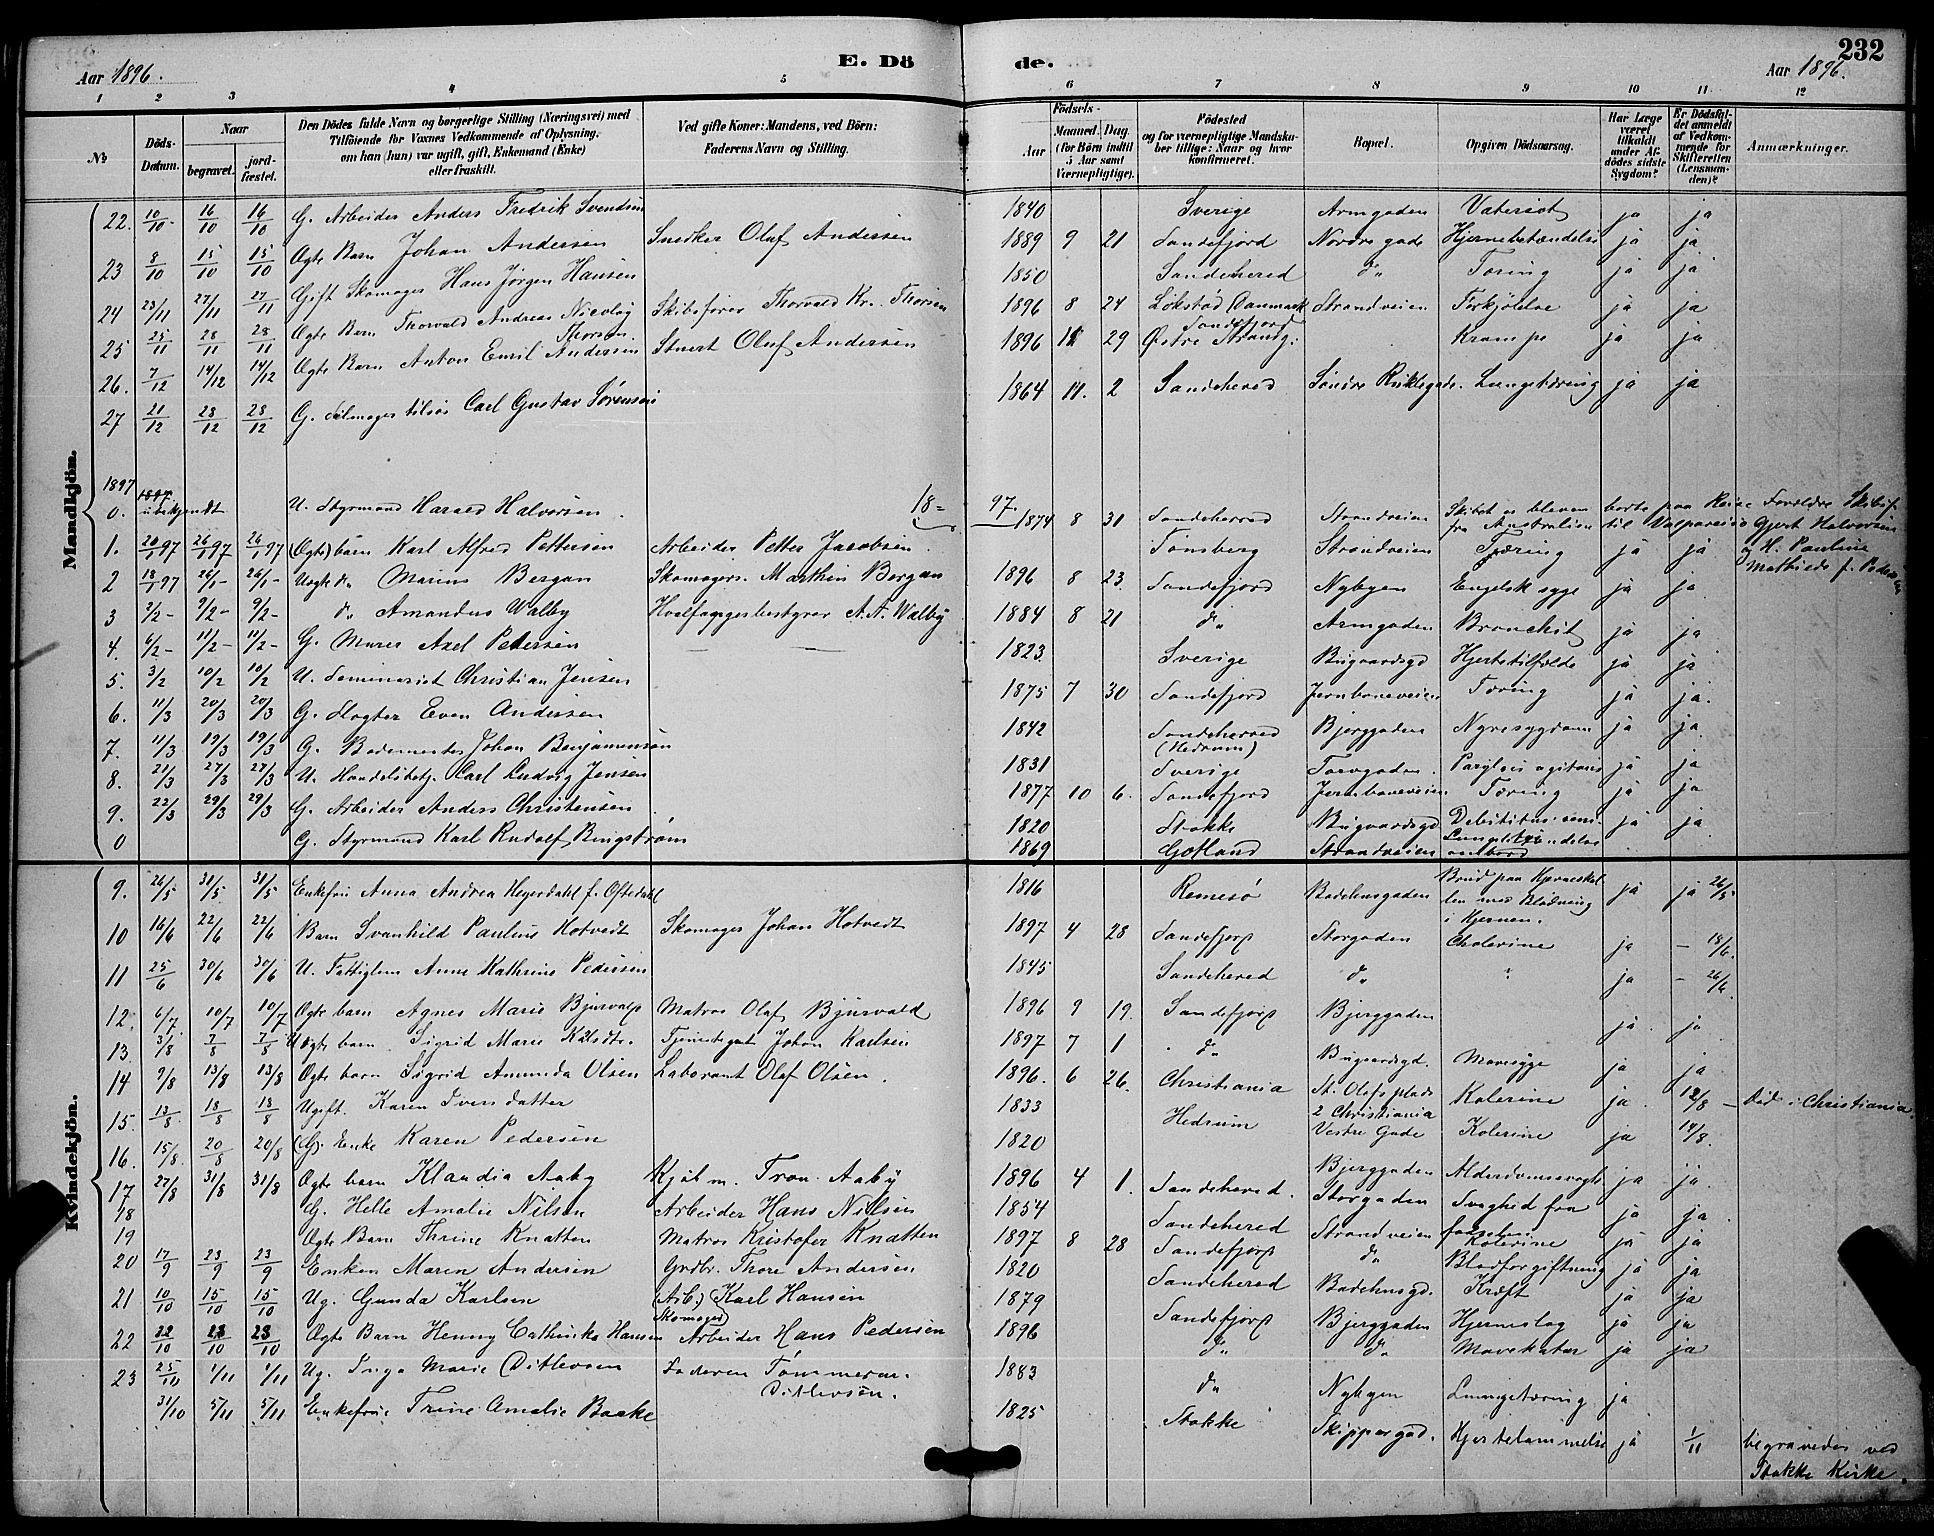 232
Aar 1896.
E. Dö
de.
Aar 1896.
1 2 3 4 5 6 7 8 9 10 11 12
№
Döds-Datum.
Naar
begravet.
jord-fæstet.
Den Dödes fulde Navn og borgerlige Stilling (Næringsvei) med
Tilföiende for Voxnes Vedkommende af Oplysning:
om han (hun) var ugift, gift, Enkemand (Enke)
eller fraskilt.
Ved gifte Koner: Mandens, ved Börn:
Faderens Navn og Stilling.
Födsels-
Aar
Maaned. Dag.
(for Börn indtil
5 Aar samt
Værnepligtige).
Födested
og for værnepligtige Mandska-
ber tillige: Naar og hvor
konfirmeret.
Bopæl.
Opgiven Dödsaarsag.
Har Læge
været
tilkaldt
under Af-
dödes sidste
Sygdom?
Er Dödsfal-
det anmeldt
af Vedkom-
mende for
Skifteretten
(Lensman-
den)?
Anmærkninger.
Mandkjön.
22. 10/10 16/10 16/10 G. Arbeider Anders Fredrik Svendsen 1840 Sverige Armgaden Vatersot ja ja
23 8/10 15/10 15/10 Ægte Barn Johan Andersen Snedker Olaf Andersen 1889 9 21 Sandefjord Nordre gade Hjernebetændelse ja ja
24 23/11 27/11 27/11 Gift Skomager Hans Jørgen Hansen 1850 Sandeherred do Tæring ja ja
25 25/11 28/11 28/11 Ægte Barn Thorvald Andreas Nicolay Thorsen Skibsfører Thorvald Kr. Thorsen 1896 8 24 Løkstad Danmark Strandveien Forkjølelse ja ja
26. 7/12 14/12 14/12 Ægte Barn Anton Emil Andersen Stuert Oluf Andersen 1896 11 29 Sandefjord Østre Strandg. Krampe ja ja
27 21/12 28/12 28/12 G. Selmager tilsøs Carl Gustav Sørensen 1864 11. 2 Sandeherred Søndre Kirkegade. Lungetæring ja ja
1897 18=97.
0. 1897 ubekjendt U. Styrmand Harald Halvorsen 1874 8 31 Sandeherred Strandveien Skibet er bleven borte paa Reise
fra Australien til Valparaiso Forældre Skibsf.
Gjert Halvorsen
og H. Pauline
Mathilde f. Pedersen
1. 20/1 97 26/1 97 26/1 97 (Ægte) barn Karl Alfred Pettersen Arbeider Petter Jacobsen Tønsberg Strandveien Tæring ja ja
2 18/1 97 26/1 - 26/1 - Uægte do Marius Bergan Skomagers. Marthin Bergan 1896 8 23. Sandefjord Nybyen Engelsk syge ja ja
3 2/2 - 9/2 - 9/2 - do Amandus Walby Hvalfangerbestyrer A. A. Walby 1884 8 21 do Armgaden Bronchit ja ja
4. 6/2 - 11/2 - 11/2 - G. Murer Axel Petersen 1823 Sverige Bugaardsgd Hjertetilfælde ja ja
5. 3/2 10/2 10/2 U. Seminarist Christian Jensen 1875 7 30 Sandefjord Jernbaneveien Tæring ja ja.
6. 11/3 20/3 20/3 G. Slagter Even Andersen 1842 Sandeherred (Hedrum) Bjerggaden Nyresygdom ja ja
7. 11/3 19/3 19/3 G. Bademester Johan Benjaminsen 1831 Sverige Torvgaden ja ja
8. 21/3 27/3 27/3 U. Handelsbetj. Carl Ludvig Jensen 1877 10 6. Sandefjord Jernbaneveien Tæring ja ja
9. 22/3 29/3 29/3 G. Arbeider Anders Christensen 1820 Stokke Bugaardsgd ja ja
0 G. Styrmand Karl Rudolf Bengstrøm 1869 Gotland Strandveien Lungebetændelse ombord
Kvindekjön.
9. 26/5 31/5 31/5 Enkefru Anna Andrea Heyerdahl f. Oftedahl 1816 Remesø Badehusgaden Brud paa Hjerneskal-
len med Blødning
i Hjernen. ja ja 26/5
10 16/6 22/6 22/6 Barn Svanhild Pauline Hotvedt Skomager Johan Hotvedt 1897 4 28 Sandefjord Storgaden Cholerine ja - 18/6.
11 25/6 30/6 30/6 U. Fattiglem Anne Kathrine Pedersen 1845 Sandeherred do " ja - 26/6
12. 6/7 10/7 10/7 Ægte barn Agnes Marie Bjusvald Matros Olaf Bjusvald 1896 9 19. Sandefjord Bjerggaden ja ja
13. 3/8 7/8 7/8 Uægte barn Sigrid Marie Tjenestegut Johan Karlsen 1897 7 1 do Bugaardsgd. Mavesyge ja ja
14 9/8 13/8 13/8 Ægte barn Sigrid Amunda Olsen Laborant Olaf Olsen. 1896. 6 26. Christiania St. Olafs plads 2 Christiania Kolerine ja 12/8 - Død i Christiania
15. 13/8 18/8 18/8 Ugift. Karen Iversdatter 1833 Hedrum Vestre Gade Kolerine ja 14/8.
16. 15/8. 20/8 20/8 (G). Enke Karen Pedersen 1820 Bjerggaden Alderdomssvagh. ja ja.
17 27/8 31/8 31/8 Ægte barn Klaudia Aaby Kjøbm. Tron. Aaby 1896 4 1. Sandeherred. Storgaden Svaghed fra fødselen ja ja
18 G. Helle Amalie Nilsen Arbeider Hans Nielsen 1854 Sandeherred Strandveien Kolerine ja ja
19 Ægte Barn Thrine Knatten Matros Kristofer Knatten 1897 8 28 Sandefjord do Blodforgiftning ja ja
20 17/9 23/9 23/9 Enken Maren Andersen Grdbr. Thore Andersen 1820 Sandeherred Badehusgd. Kræft ja ja
21 10/10 15/10 15/10 Ug. Gunda Karlsen (Arb.) (Skomager) Karl Hansen 1879 Sandefjord Bjerggaden Hjerneslag ja ja
22 22/10 23/10 23/10 Ægte Barn Henny Cathinka Hansen Arbeider Hans Pedersen 1896 do do Mavekatar ja ja
23 25/10 1/11 1/11 Ug. Inga Marie Ditlevsen Faderen Tømmerm. Ditlevsen. 1883 do Nybyen Lungetæring ja
31/10 5/11 5/11 Enkefrue Trine Amalie Baake 1825 Stokke Skippergad. Hjertelammelse ja 1/11 begravedes ved
Stokke Kirke.